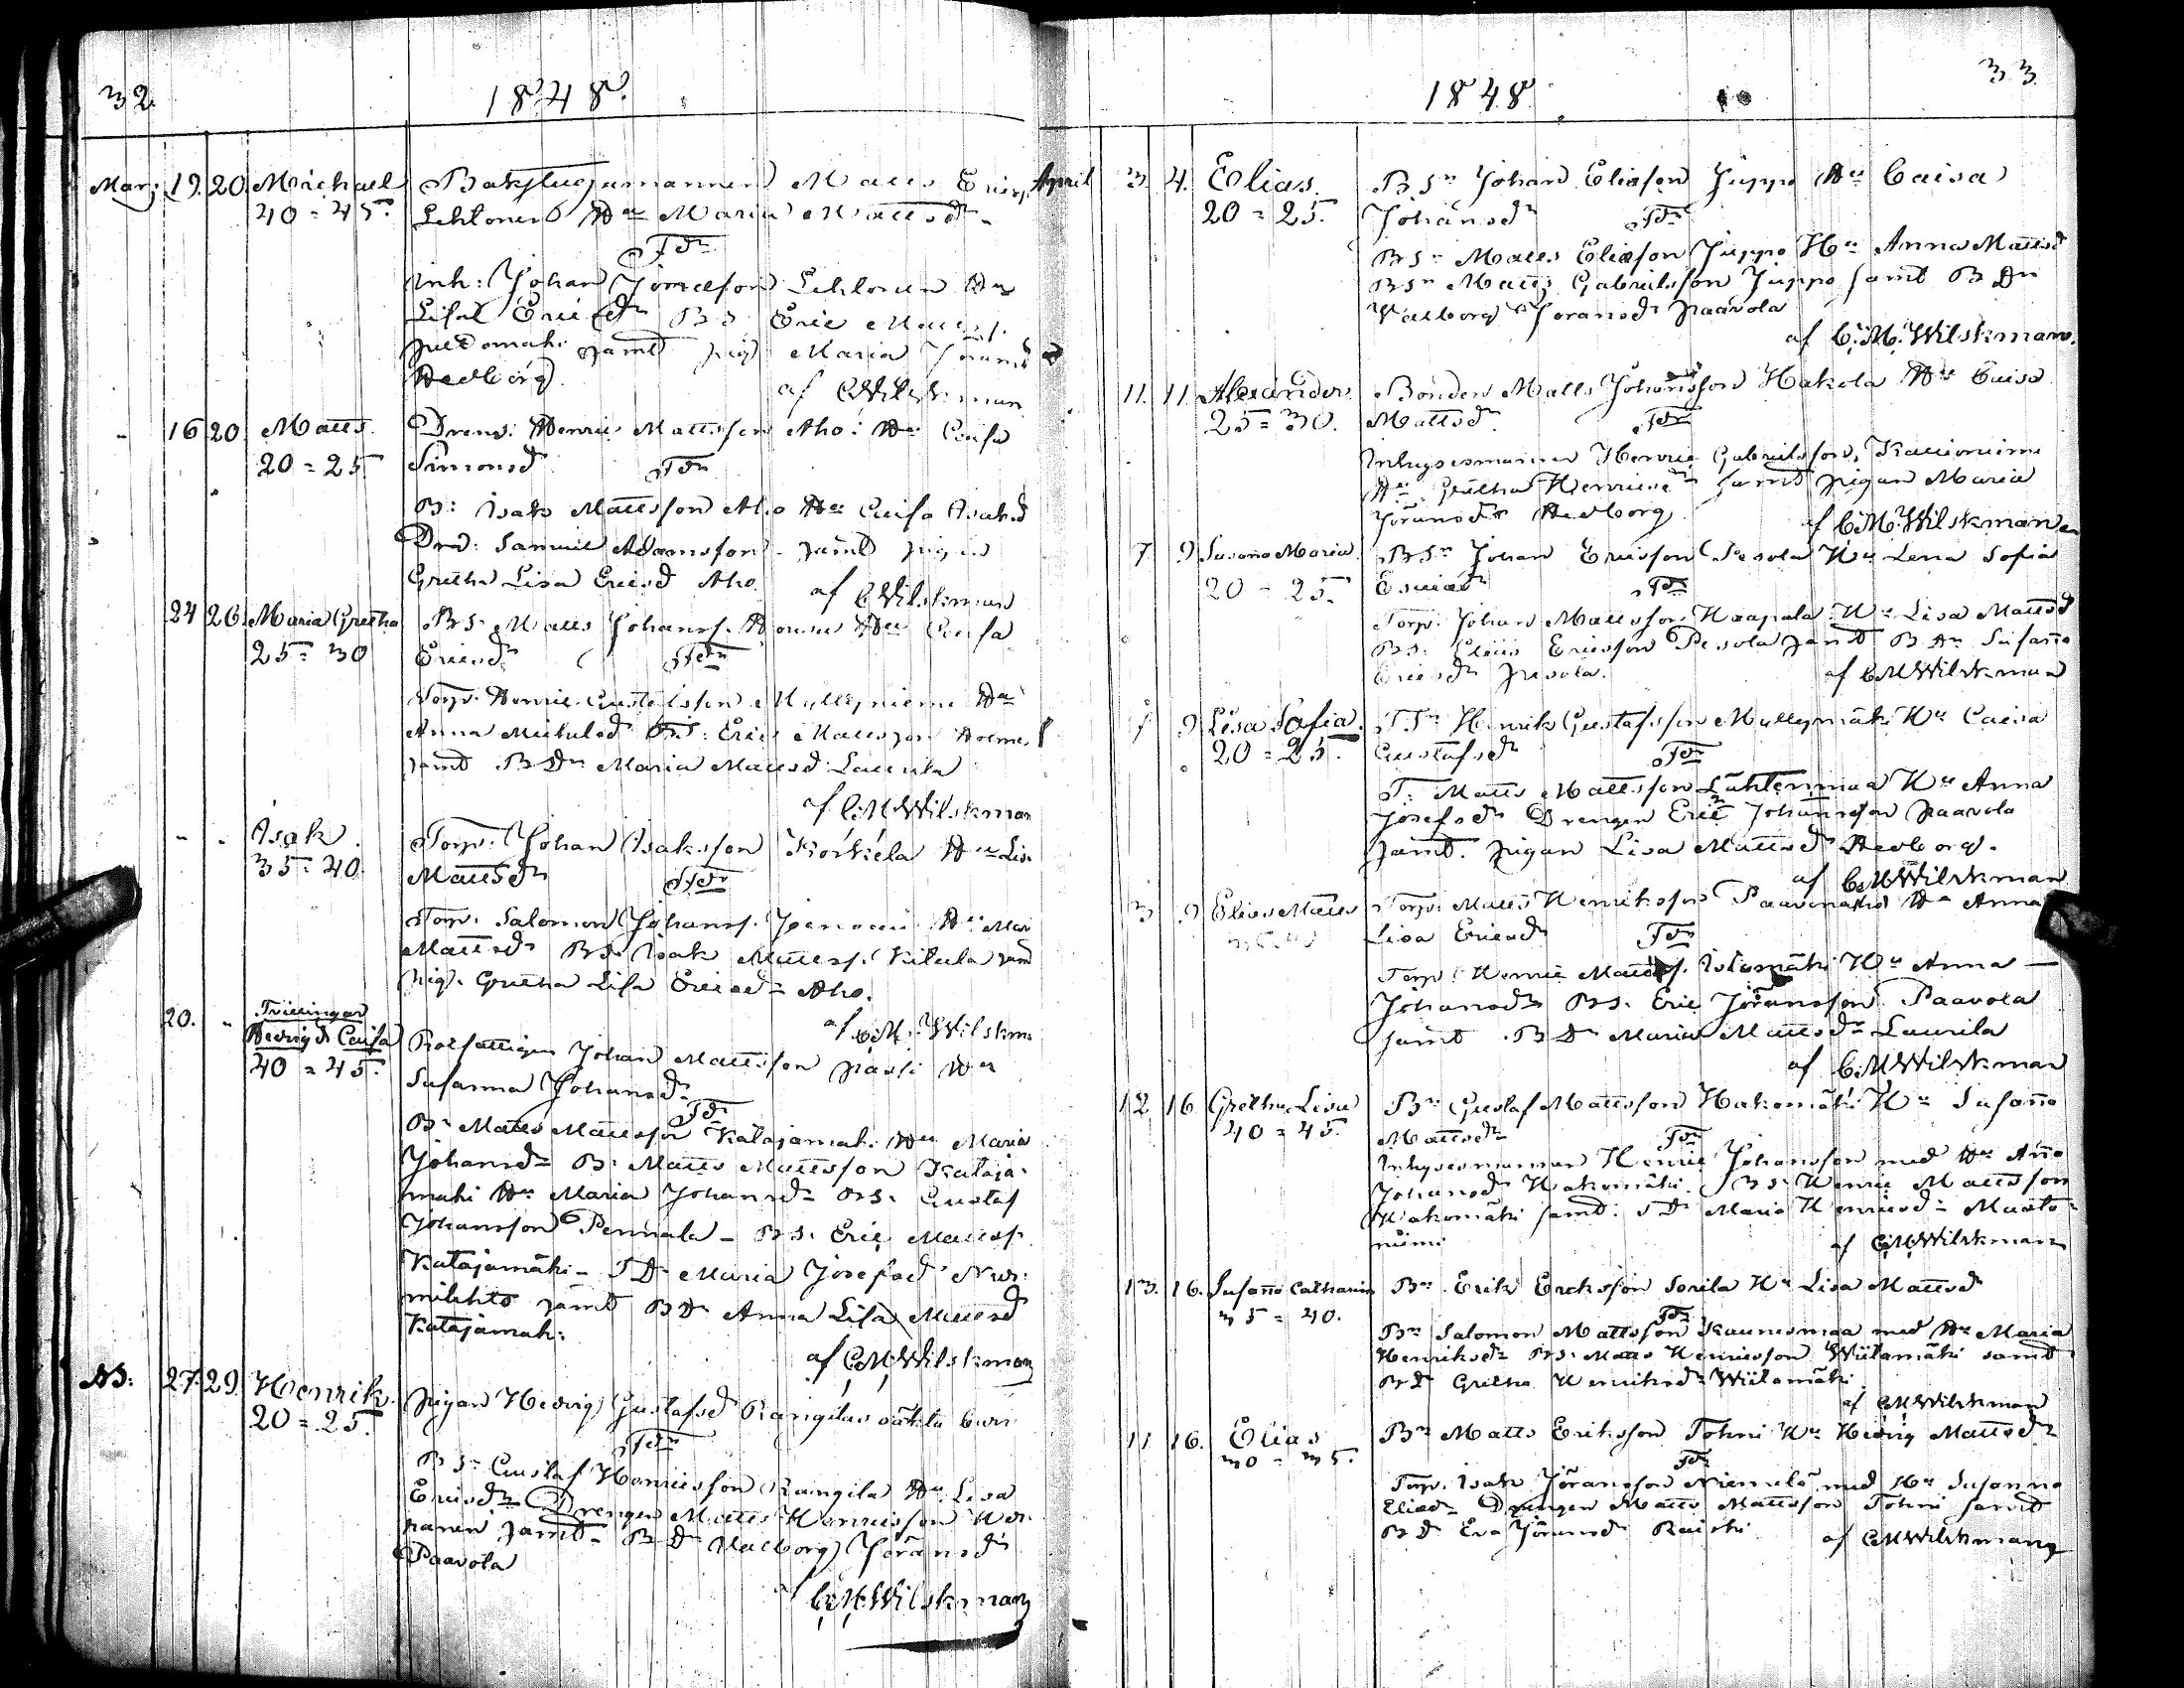 32
1848.
Mars 19. 20. Michael Backstugumannen Matts Erics.
40=45. Lehtonen Hu Maria Mattsdr
Tdr
Inh: Johan Lehtonen Hu
Lisa Ericsdr B S Eric Matts.
samt pig Maria
Hedborg.
af CWilskman
16 20 Matts Dreng: Henric Mattsson Aho: Hu Caisa
20=25 Simonsd. Tdr
B: Isak Mattsson Aho Hu Caisa Isaksd
Drg: Samuel Adamsson samt pigan
Gretha Lisa Ericsd Aho
af CWilskman
24 26. Maria Gretha BS. Matts Johanss. Hu Caisa
25=30 Ericsdr Tdr
Torp. Henric Gustafsson Myllyniemi Hu
Anna Michelsd BS: Eric Mattsson
samt B Dr Maria Mattsd Laurila
af C.M.Wilskman
- - Isak. Torp: Johan Isaksson Körkelä Hu Lisa
35=40. Mattsdr Tdr
Torp. Salomon Johanss. Hu Mar
Mattsdr BS. Isak Mattss. Kitula samt
pig. Gretha Lisa Ericsdr Aho.
af C.M. Wilskm
20. - Tvillingar
Hedvig & Caisa Rotfattigen Johan Mattsson Passi Hu
40=45. Susanna Johansdr
Tdr
Br Matts Mattsson Katajamäki Hu Maria
Johansdr B: Matts Mattsson Kataja-
mäki Hu Maria Johansdr BS. Gustaf
Johansson Pennala - BS. Eric Mattss.
Katajamäki - T Dr Maria Josefsd
samt B Dr Anna Lisa Mattsd
Katajamäk:
af C.M.Wilskman
NS: 27. 29. Henrik. Pigan Hedvig Gustafsd Rangila oäkta barn
20=25. Tdr
B Sn Gustaf Henricsson Rangila Hu Lisa
Ericsdr Drengen Matts Henricsson
samt - B Dr Valborg Joransdr
Paavola
af C.M.Wilskman
33.
1848.
April 3. 4. Elias. B Sn Johan Eliasson Juppo Hu Caisa
20=25. Johansdr Tdr
B Sn Matts Eliasson Juppo Hu Anna Mattsd
B Sn Matts Gabrielsson Juppo samt B Dr
Valborg Joransdr Paavola
af C.M.Wilskman.
11. 11. Alexander Bonden Matts Johansson Hakola Hu Caisa
25=30. Mattsdr. Tdr
Inhysesmannen Henric Gabrielsson Kauioniemi
Hu Gretha Henricsdr samt pigan Maria
Joransdr Hedborg af C.M.Wilskman
7 9 Susana Maria B Sn Johan Ericsson Pesola Hu Lena Sofia
20-25. Esaiasdr Tdr
Torp. Johan Mattsson Haapala Hu Lisa Mattsd
BS. Elias Ericsson Pesola samt B Dr Susaña
Ericsdr Pesola. af CMWilskman
7 9 Lisa Sofia. T Sn Henrik Gustafsson Myllymäki Hu Caisa
20=25. Gustafsdr Tdr
T: Matts Mattsson Lähteenmaa Hu Anna
Josefsdr Drengen Eric Johansson Paavola
samt. pigan Lisa Mattsdr Hedborg.
af C.M.Wilskman
3 9 Elias Matts Torp. Matts Henriksson Hu Anna
Lisa Ericsdr Tdr
Torp. Henric Mattss. Istomäki Hu Anna
Johansdr BS. Eric Joransson Paavola
samt B Dr Maria Mattsdr Laurila
af C.M.Wilskman
12 16 Gretha Lisa Br Gustaf Mattsson Hakomäki Hu Susaña
40=45. Mattsdr Tdr
Inhysesmannen Henric Johansson med Hu Aña
Johansd Hakomäki. BS. Henric Mattsson
Hakomäki samt. T Dr Maria Henricsdr Musto-
niemi af CMWilskman
13. 16. Susaña Catharina Br Erik Eriksson Sorila Hu Lisa Mattsd
35=40. Tdr
Br Salomon Mattsson Kaunismaa med Hu Maria
Henriksdr BS. Matts Henricsson Wiitamäki samt
B Dr Gretha Henriksdr Wiitamäki
af CMWilskman
11 16. Elias Br Matts Eriksson Tohni Hu Hedvig Mattsdr
30=35. Tdr
Torp. Isak Joransson Niemelä med Hu Susanna
Eliasdr Drengen Matts Mattsson Tohni samt
B Dr Eva Joransdr Raiski af CMWilskman